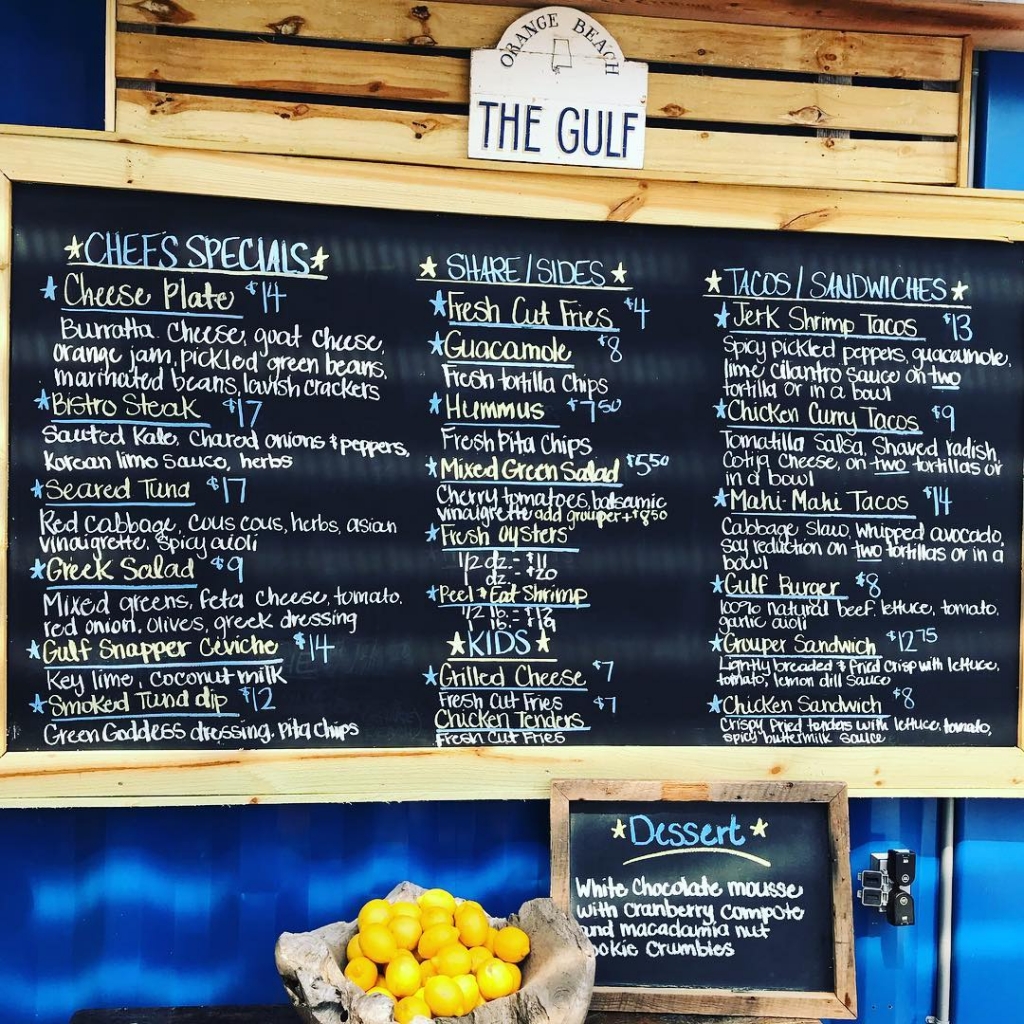 ORANGE BEACH
THE GULF
CHEF'S SPECIALS
Cheese Plate $14
Burratta Cheese, goat cheese,
orange jam, pickled green beans,
marinated beans, lavish crackers
Bistro Steak $17
Sauted Kale, Chared onions & peppers,
Korean lime sauce, herbs
Seared Tuna $17
Red cabbage, cous cous, herbs, asian
vinaigrette, spicy aioli
Greek Salad $9
Mixed greens, feta cheese, tomato,
red onion, olives, greek dressing
Gulf Snapper Ceviche $14
Key lime, coconut milk
Smoked Tuna dip $12
Green Goddess dressing, pita chips
SHARE/SIDES
Fresh Cut Fries $4
Guacamole $8
Fresh tortilla Chips
Hummus $7.50
Fresh Pita Chips
Mixed Green Salad $5.50
Cherry tomatoes, balsamic
vinaigrette add grouper +$8.50
Fresh Oysters
1/2 dz. - $11
dz. - $20
Peel & Eat Shrimp
1/2 lb. - $12
1 lb. -
KIDS
Grilled Cheese $7
Fresh Cut Fries
Chicken Tenders $7
Fresh Cut Fries
TACOS/SANDWICHES
Jerk Shrimp Tacos $13
Spicy pickled peppers, guacamole,
lime cilantro sauce on two
tortilla or in a bowl
Chicken Curry Tacos $9
Tomatilla Salsa, Shaved radish,
Cotija Cheese, on two tortillas or
in a bowl
Mahi-Mahi Tacos $14
Cabbage Slaw, whipped avocado,
soy reduction on two tortillas or in a
bowl
Gulf Burger $8
100% natural beef, lettuce, tomato,
garlic aioli
Grouper Sandwich $12.75
Lightly breaded & fried crisp with lettuce,
tomato, lemon dill sauce
Chicken Sandwich $8
Crispy fried tenders with lettuce, tomato,
spicy buttermilk sauce
Dessert
White Chocolate mousse
with Cranberry Compote
and macadamia nut
cookie Crumbles